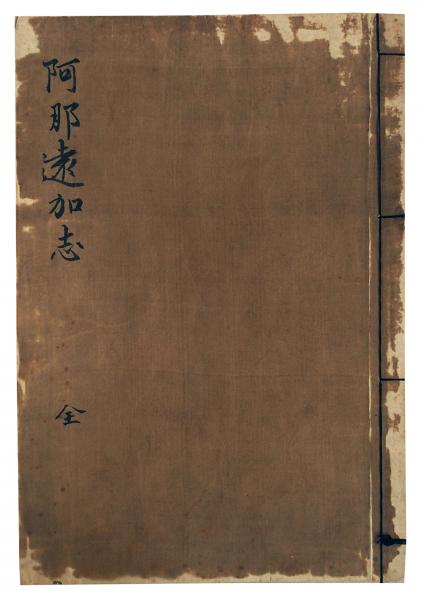 阿那遠加志
全